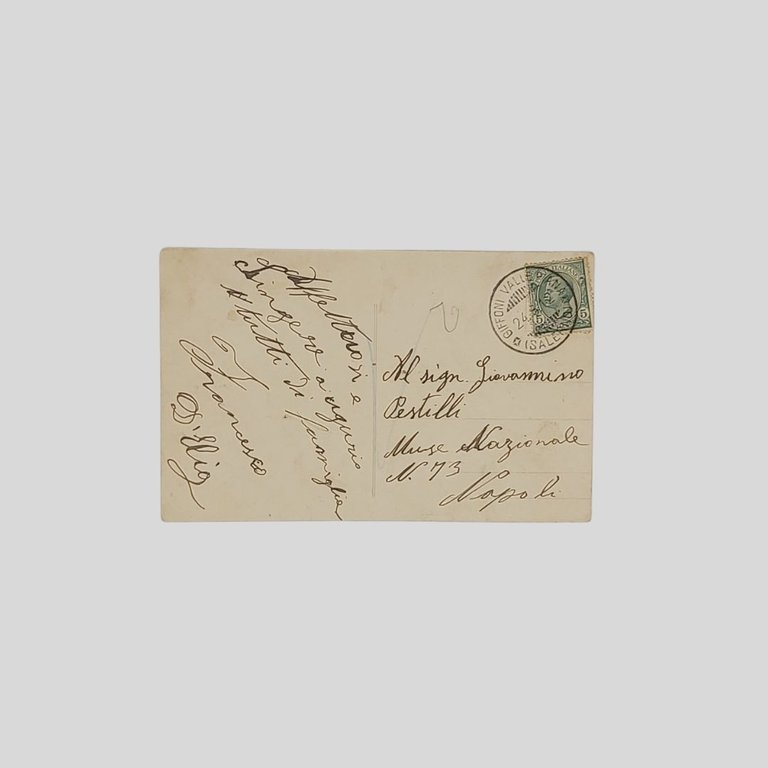 Affettuosi e
Sinceri auguri
a tutti di famiglia
Francesco
D'Elia
GIFFONI VALLE PIANA
24
(SALERNO)
5 5
Al sign. Giovannino
Pestilli
Muse Nazionale
N. 73
Napoli